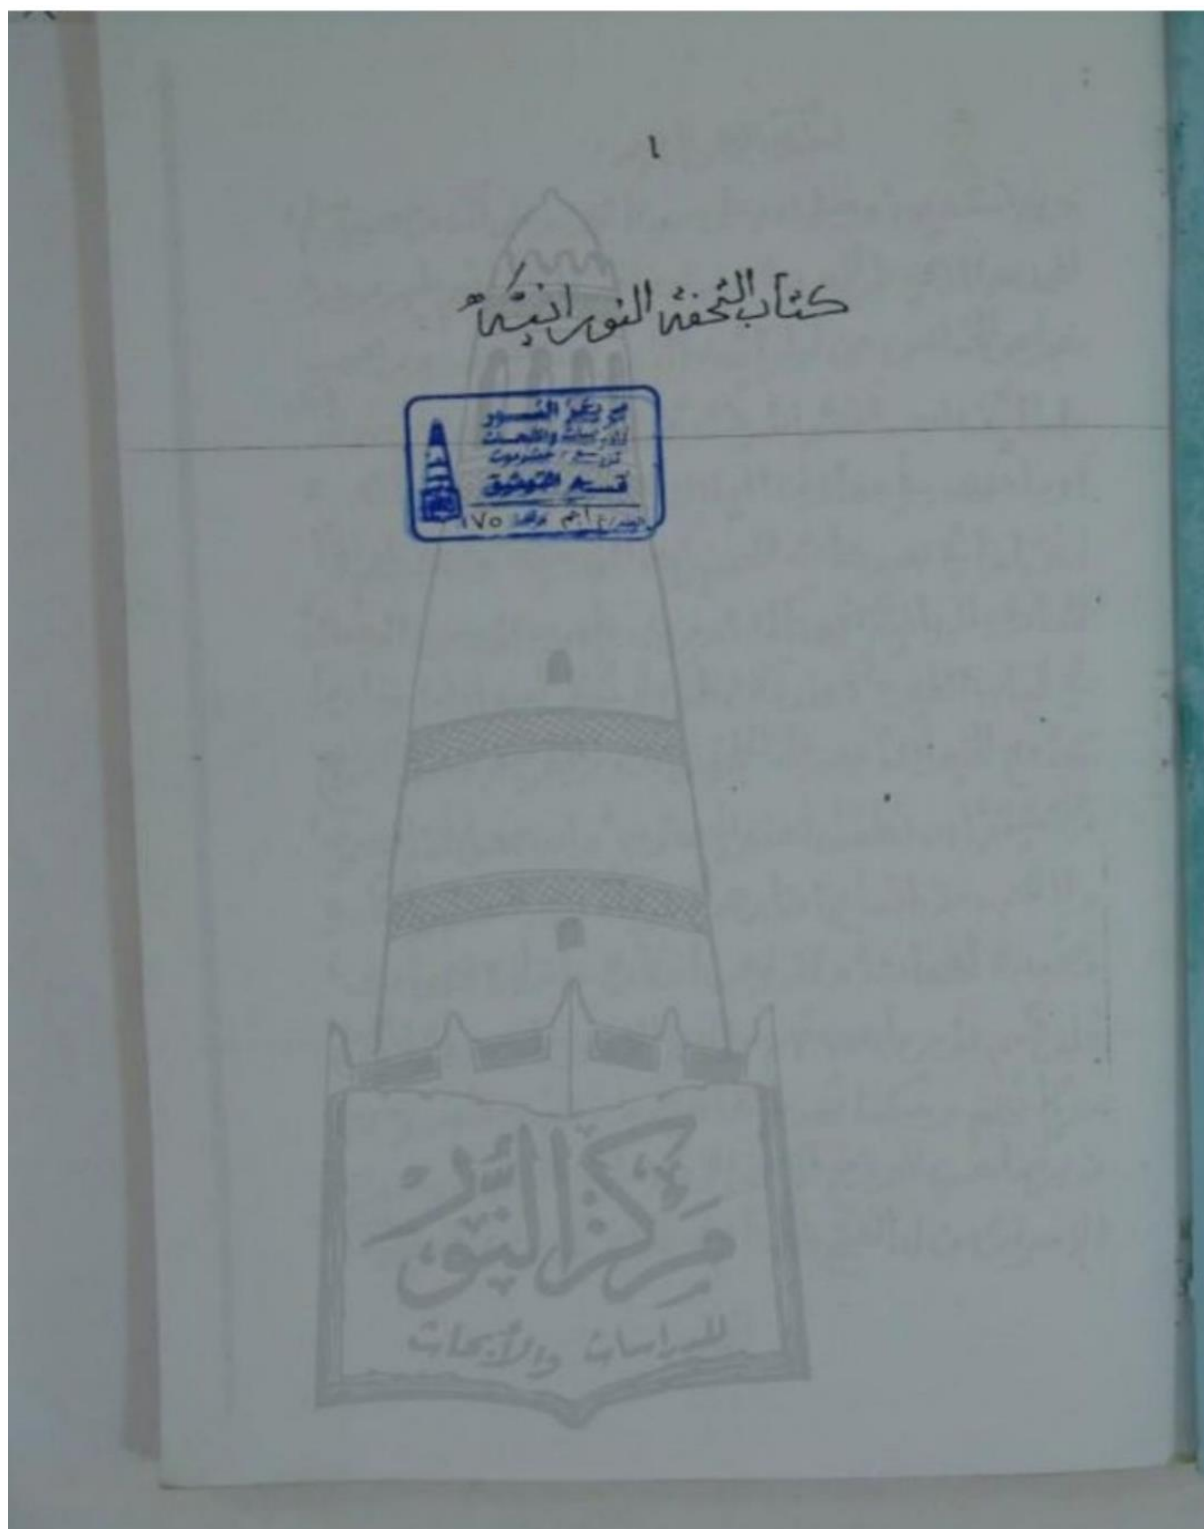 ١
كتاب التحفة النورانية
مركز النور
للدراسات والأبحاث
تريم / حضرموت
قسم التوثيق
١٧٥
مركز النور
للدراسات والأبحاث